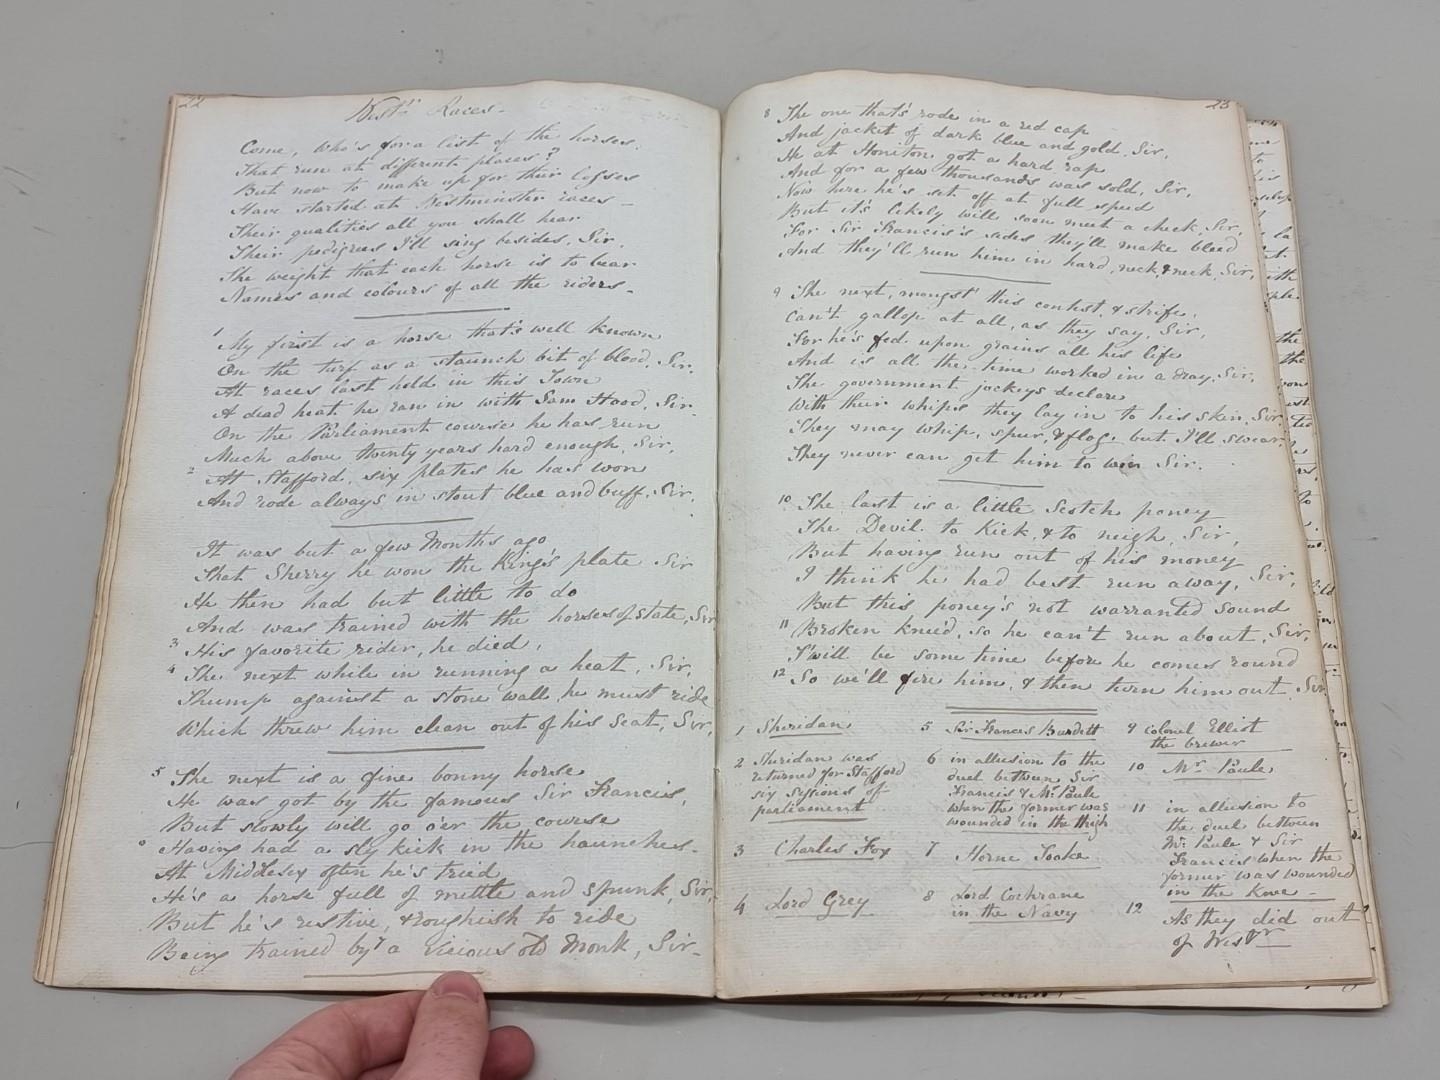 22
Westr. Races -
Come, who's for a list of the horses,
That run at different places?
But now to make up for their losses
Have started at Westminster races -
Their qualities all you shall hear
Their pedigrees I'll sing besides, Sir,
The weight that each horse is to bear
Names and colours of all the riders -
1 My first is a horse that's well known
On the turf as a staunch bit of blood, Sir,
At races last held in this Town
A dead heat he ran in with Sam Hood, Sir.
On the Parliament course he has run
Much above twenty years hard enough, Sir,
2 At Stafford, six plates he has won
And rode always in stout blue and buff, Sir.
It was but a few Months ago
That Sherry he won the King's plate Sir
He then had but little to do
And was trained with the horses of state, Sir
3 His favorite rider, he died,
4 The next while in running a heat, Sir,
Thump against a stone wall, he must ride
Which threw him clean out of his seat, Sir,
5 The next is a fine bonny horse
He was got by the famous Sir Francis,
But slowly will go o'er the course
6 Having had a sly kick in the haunches -
At Middlesex often he's tried
He's a horse full of mettle and spunk, Sir,
But he's restive, & roughish to ride
Being trained by 7 a vicious old Monk, Sir -
23
8 The one that's rode in a red cap
And jacket of dark blue and gold, Sir,
He at Honiton got a hard rap
And for a few thousands was sold, Sir,
Now here he's set off at full speed
But it's likely will soon meet a check, Sir,
For Sir Francis's sides they'll make bleed
And they'll run him in hard, neck & neck, Sir,
9 The next, mongst this contest, & strife,
Can't gallop at all, as they say, Sir,
For he's fed upon grains all his life
And is all the time worked in a dray, Sir,
The government jockeys declare
With their whips they lay in to his skin, Sir,
They may whip, spur, & flog, but I'll swear,
They never can get him to win Sir.
10 The last is a little Scotch poney
The Devil to Kick, & to neigh, Sir,
But having run out of his money
I think he had best run away, Sir,
But this poney's not warranted sound
11 Broken kneed, so he can't run about, Sir,
T'will be some time before he comes round
12 So we'll fire him, & then turn him out Sir
1 Sheridan.
2 Sheridan was
returned for Stafford
six Sessions of
parliament
3 Charles Fox
4 Lord Grey
5 Sir Francis Burdett
6 in allusion to the
duel between Sir
Francis & Mr. Paule
when the former was
wounded in the thigh
7 Horne Tooke
8 Lord Cochrane
in the Navy
9 Colonel Elliot
the brewer
10 Mr. Paule
11 in allusion to
the duel between
Mr. Paule & Sir
Francis when the
former was wounded
in the Knee -
12 As they did out
of Westr